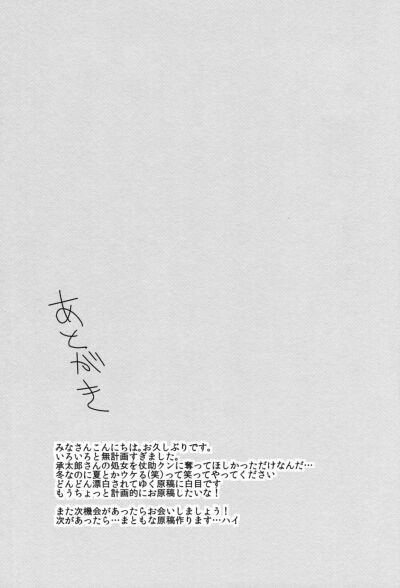 あとがき
みなさんこんにちは。お久しぶりです。
いろいろと無計画すぎました。
承太郎さんの処女を仗助クンに奪ってほしかっただけなんだ…
冬なのに夏とかウケる(笑)って笑ってやってください
どんどん漂白されてゆく原稿に白目です
もうちょっと計画的にお原稿したいな！
また次機会があったらお会いしましょう！
次があったら…まともな原稿作ります…ハイ